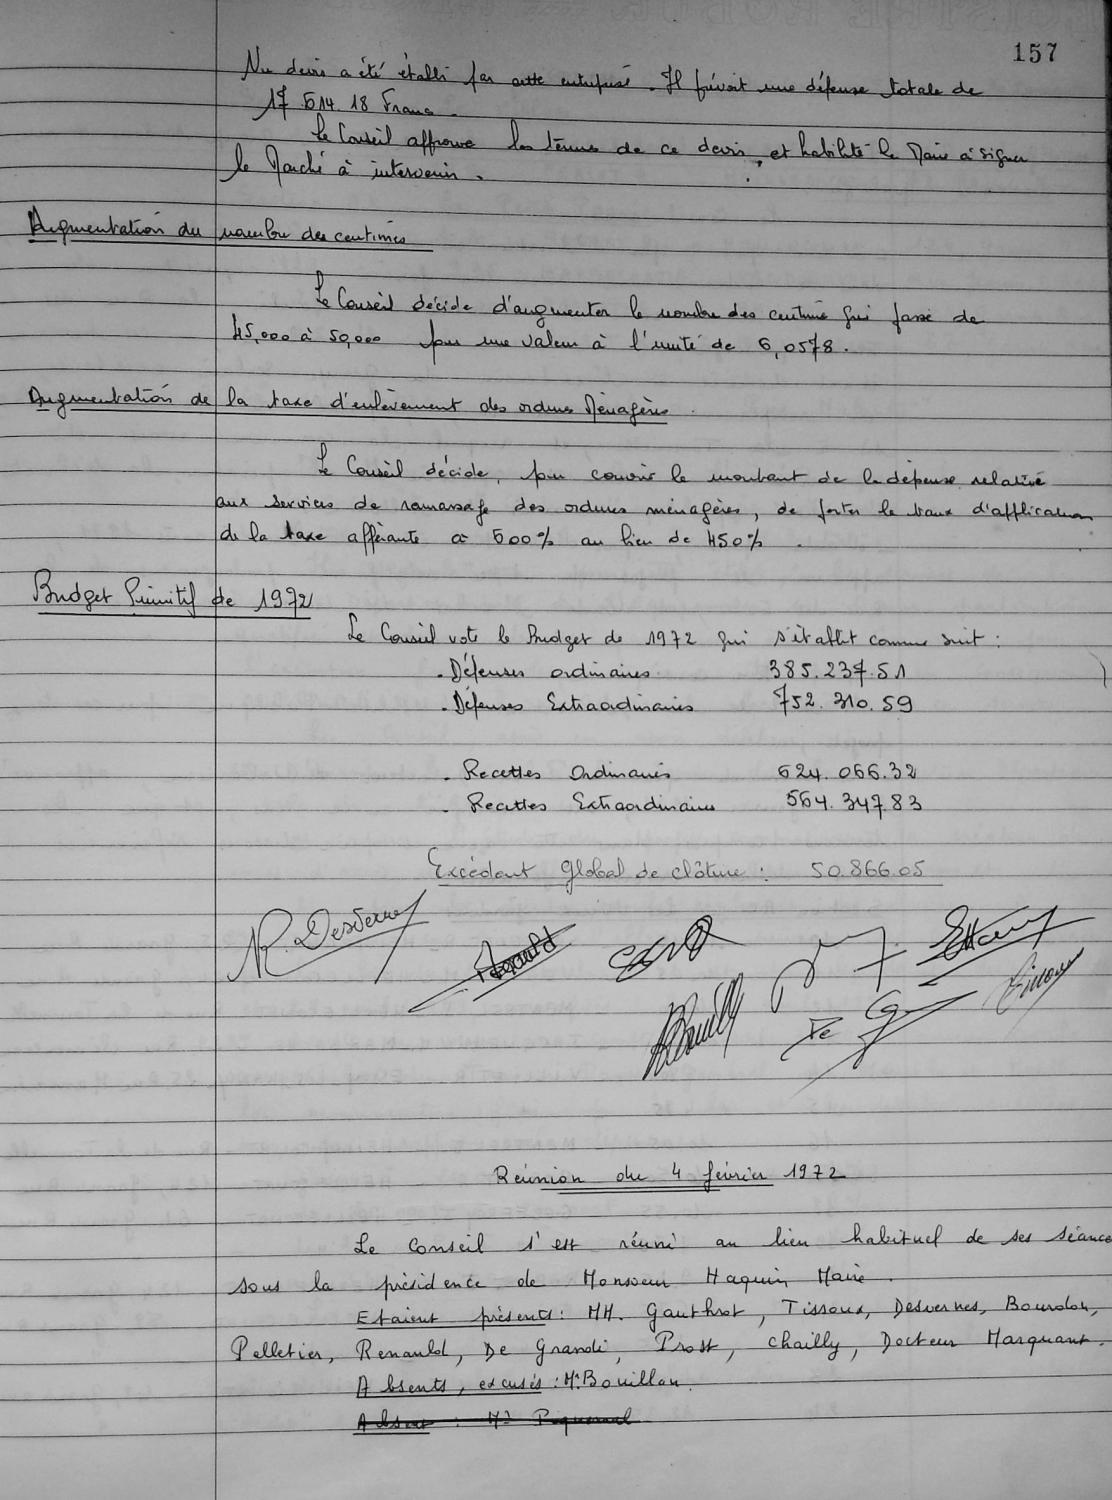 157
Un devis a été établi par cette entreprise. Il prévoit une dépense totale de
17 514.18 Francs.
Le Conseil approuve les termes de ce devis, et habilite le Maire à signer
le Marché à intervenir.
Augmentation du nombre des centimes
Le Conseil décide d'augmenter le nombre des centimes qui passe de
45,000 à 50,000 pour une valeur à l'unité de 6,0578.
Augmentation de la taxe d'enlèvement des ordures Ménagères.
Le Conseil décide, pour couvrir le montant de la dépense relative
aux services de ramassage des ordures ménagères, de porter le taux d'application
de la taxe afférante à 500% au lieu de 450%.
Budget Primitif de 1972
Le Conseil vote le Budget de 1972 qui s'établit comme suit :
. Dépenses ordinaires 385.237.51
. Dépenses Extraordinaires 752.310.59
. Recettes Ordinaires 624.066.32
. Recettes Extraordinaires 564.347.83
Excédant Global de clôture : 50.866.05
R. Desvernes
Renauld
De G
Tissoux
Réunion du 4 février 1972
Le Conseil s'est réuni au lieu habituel de ses séances
sous la présidence de Monsieur Haquin Maire.
Etaient présents : MM. Gauthrot, Tissoux, Desvernes, Bourdon,
Pelletier, Renauld, De Grandi, Prost, Chailly, Docteur Marquant.
Absents, excusés : Mr Bouillon.
Absent : Mr